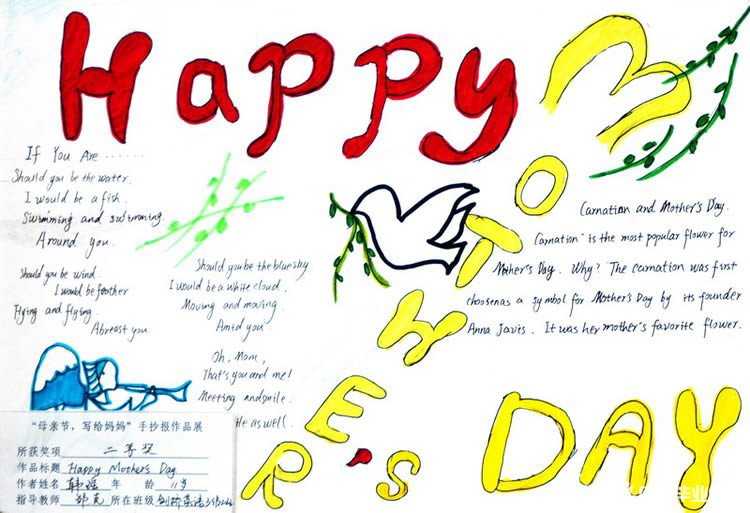 Happy
MOTHER'S
DAY
If You Are ······
Should you be the water.
I would be a fish.
Swimming and swimming
Around you.
Should you be wind.
I would be feather
Flying and flying.
Abreast you
Should you be the blue sky
I would be a white cloud.
Moving and moving
Amid you
Oh, Mom,
That's you and me!
Meeting and smile.
He as well.
Carnation and Mother's Day.
Carnation is the most popular flower for
Mother's Day. Why? The carnation was first
choosen as a symbol for Mother's Day by its founder
Anna Javis. It was her mother's favorite flower.
“母亲节，写给妈妈”手抄报作品展
所获奖项 二等奖
作品标题 Happy Mother's Day
作者姓名 韩瑶 年 龄 11岁
指导教师 所在班级 剑桥英语